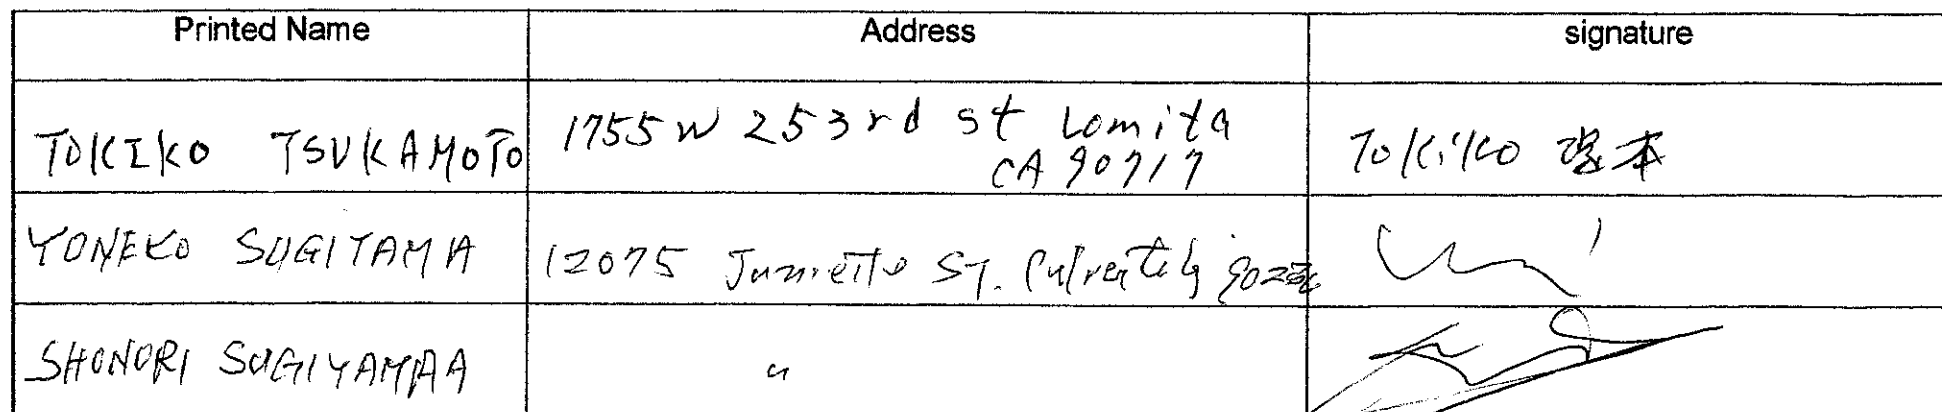 Printed Name Address signature
TOKIKO TSUKAMOTO 1755 W 253rd St Lomita TOKiKO 塚本
CA 90717
YONEKO SUGIYAMA 12075 St. Culver City
SHONORI SUGIYAMAA "